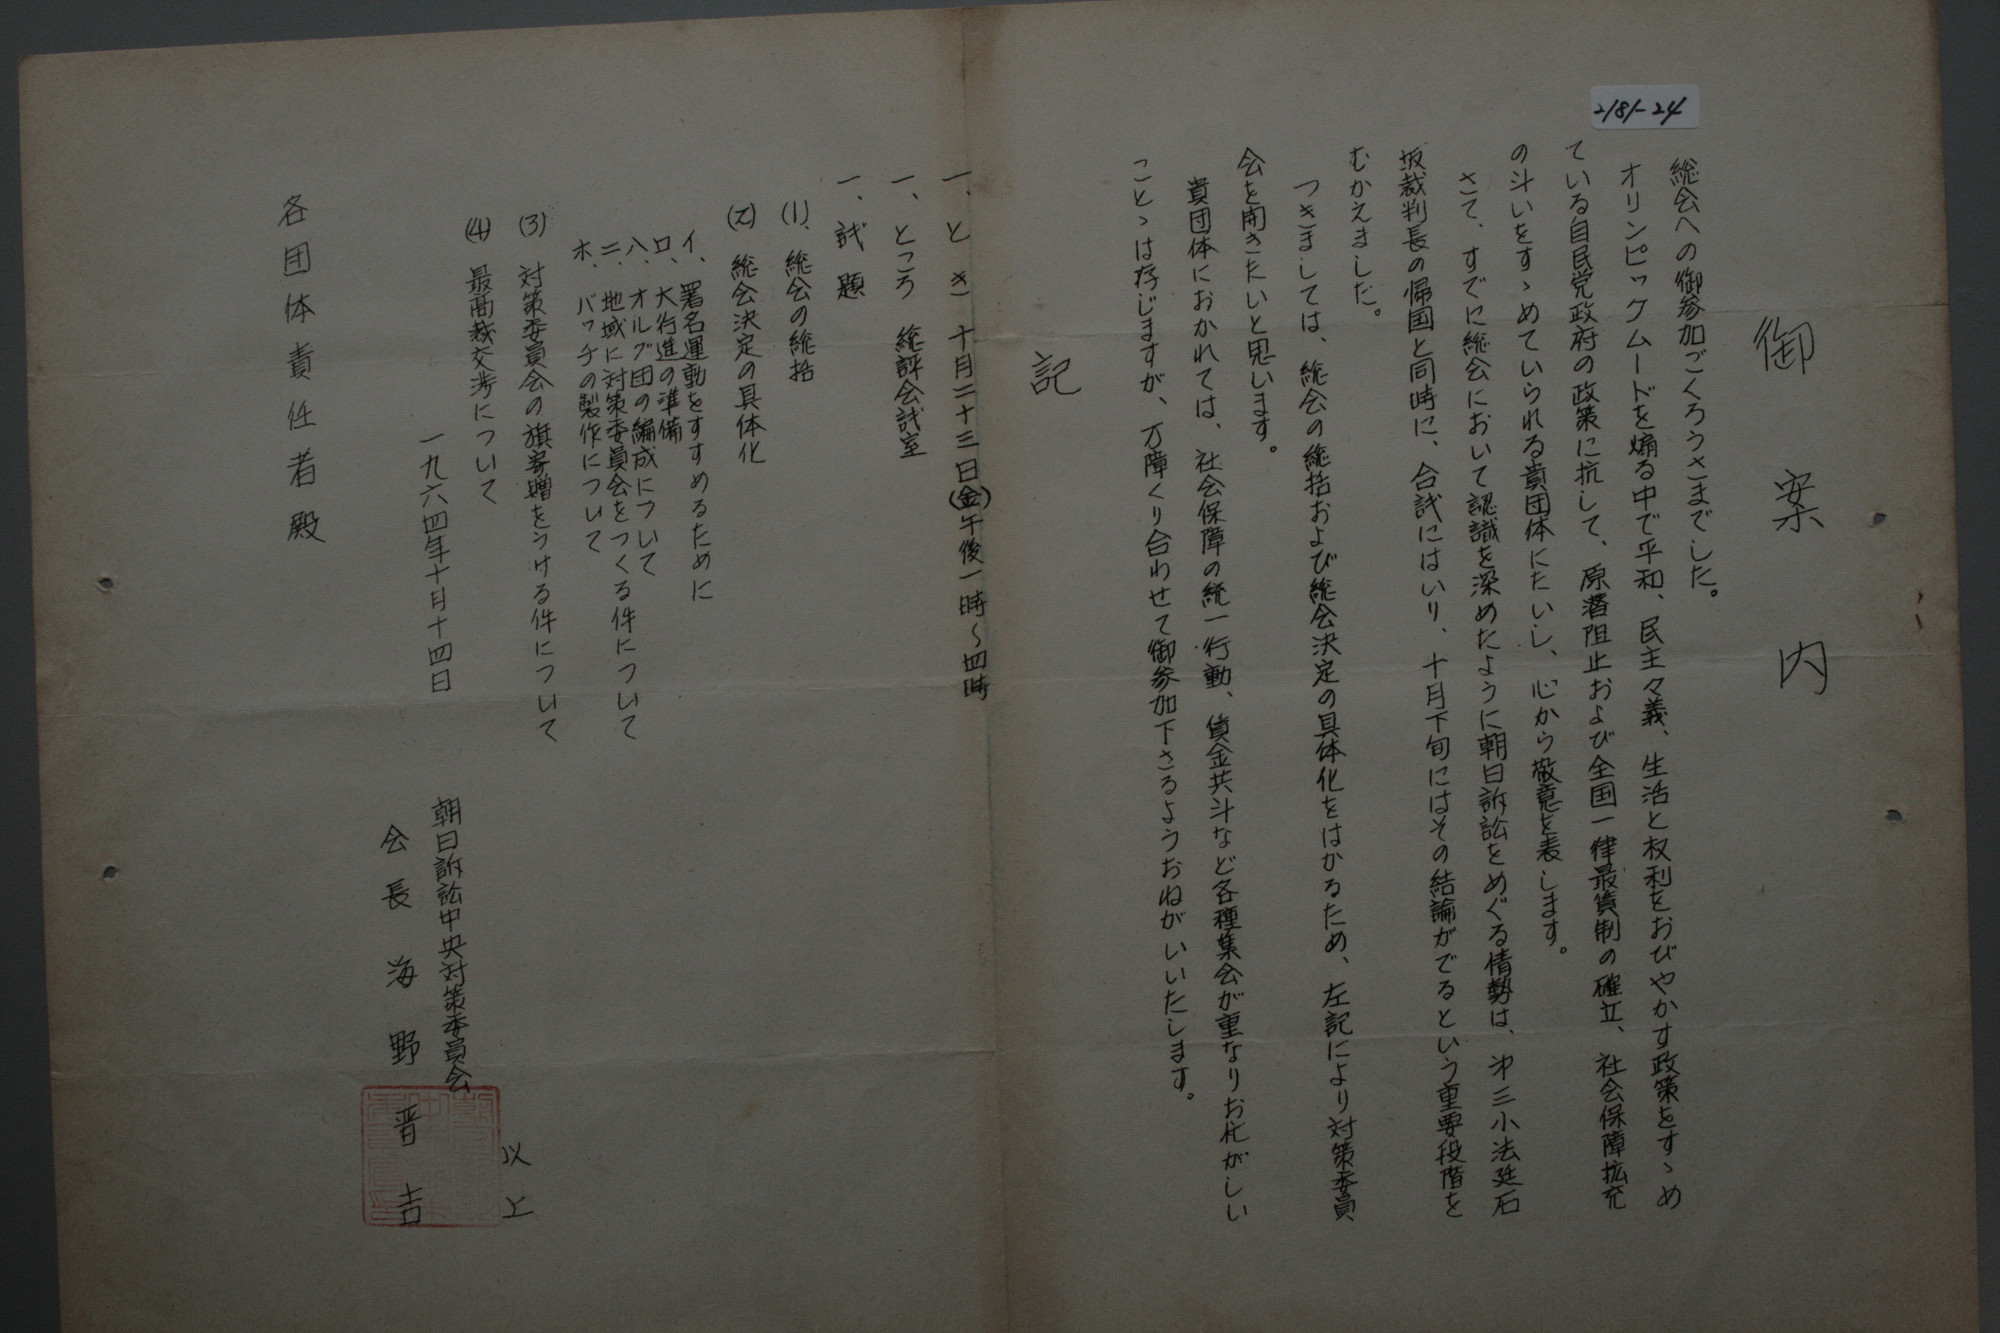 2181-24
御案内
総会への御参加ごくろうさまでした。
オリンピックムードを煽る中で平和、民主々義、生活と权利をおびやかす政策をすゝめ
ている自民党政府の政策に抗して、原潜阻止および全国一律最賃制の確立、社会保障拡充
の斗いをすゝめていられる貴団体にたいし、心から敬意を表します。
さて、すでに総会において認識を深めたように朝日訴訟をめぐる情勢は、第三小法廷石
坂裁判長の帰国と同時に、合議にはいり、十月下旬にはその結論がでるという重要段階を
むかえました。
つきましては、総会の総括および総会決定の具体化をはかるため、左記により対策委員
会を開きたいと思います。
貴団体におかれては、社会保障の統一行動、賃金共斗など各種集会が重なりお忙がしい
ことゝは存じますが、万障くり合わせて御参加下さるようおねがいいたします。
記
一、とき 十月二十三日(金)午後一時～四時
一、ところ 総評会議室
一、議題
(1)、総会の総括
(2) 総会決定の具体化
イ、署名運動をすすめるために
ロ、大行進の準備
ハ、オルグ団の編成について
ニ、地域に対策委員会をつくる件について
ホ、バッチの製作について
(3) 対策委員会の旗寄贈をうける件について
(4) 最高裁交渉について
以上
一九六四年十月十四日
朝日訴訟中央対策委員会
会長 海野晋吉
各団体責任者殿